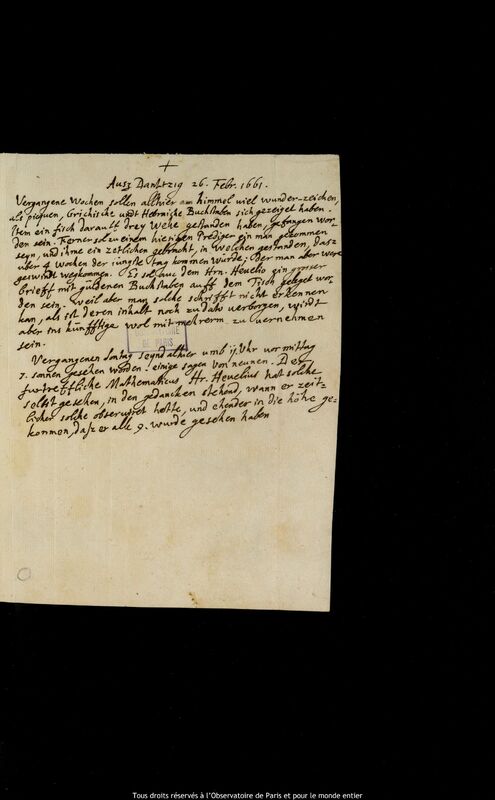 +
Ausz Dantzig 26. Febr. 1661.
Vergangene Wochen sollen allhier am himmel viel wunder-zeichen,
als piquen, Grichische undt Hebraische Buchstaben sich gezeiget haben.
Item ein fisch darauff drey Wehe gestanden haben, gefangen wor-
den sein. Ferner sol zu einem hiesigen Prediger ein man gekommen
seyn, und ihme ein zetlichen gebracht, in welchen gestanden, dasz
uber 4 wochen der jüngste Tag kommen würde; der man aber were
geswindt wegkommen. Es sol auc dem Hrn. Heuelio ein grosser
brieff mit guldenen Buchstaben auff dem Tisch geleget wor-
den sein. Weil aber man solche schrifft nicht erkennen
kan, als ist deren inhalt noch zu dato verborgen, wirdt
aber ins künfftige wol mit mehrerm zu vernehmen
sein.
DE PARIS
Vergangenen Sontag seynd allhier umb 11. Uhr vor mittag
7. sonnen gesehen worden: einige sagen von neunen. Der
furtreffliche Mathematicus, Hr. Heuelius hat solche
selbst gesehen, in den gedancken stehend, wann er zeit-
licher solche observiret hette, und ehender in die höhe ge-
kommen, dasz er alle 9. wurde gesehen haben
Tous droits réservés à l'Observatoire de Paris et pour le monde entier